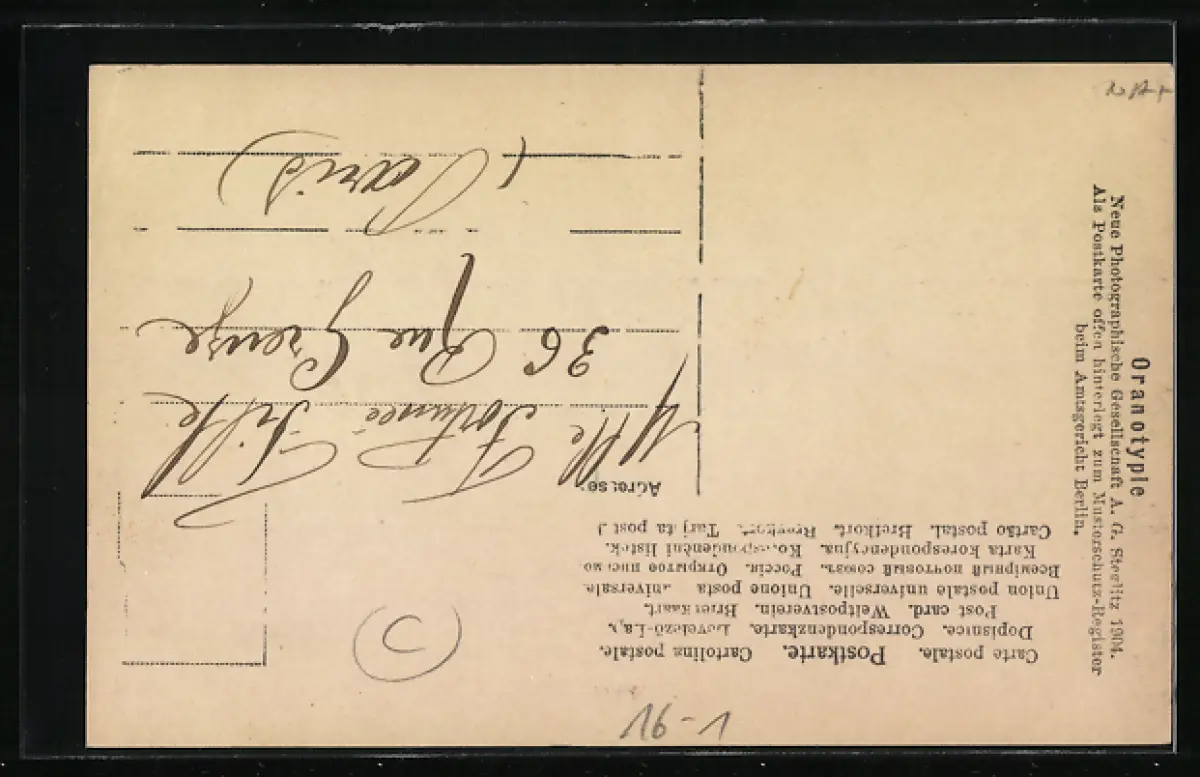 Carte postale. Postkarte. Cartolina postale.
Dopisnice. Correspondenzkarte.
Post card. Weltpostverein. Briefkaart.
Union postale universelle. Unione posta universale.
Всемірный почтовый союзъ. Россія. Открытое письмо
Karta korespondencyjna. Korespondenční listek.
Cartão postal. Brefkort. Brevkort. Tarjeta post
Adresse.
Mlle Fortunée
36 Rue Greuze
(Paris)
Oranotypie
Neue Photographische Gesellschaft A. G. Steglitz 1904.
Als Postkarte offen hinterlegt zum Musterschutz-Register
beim Amtsgericht Berlin.